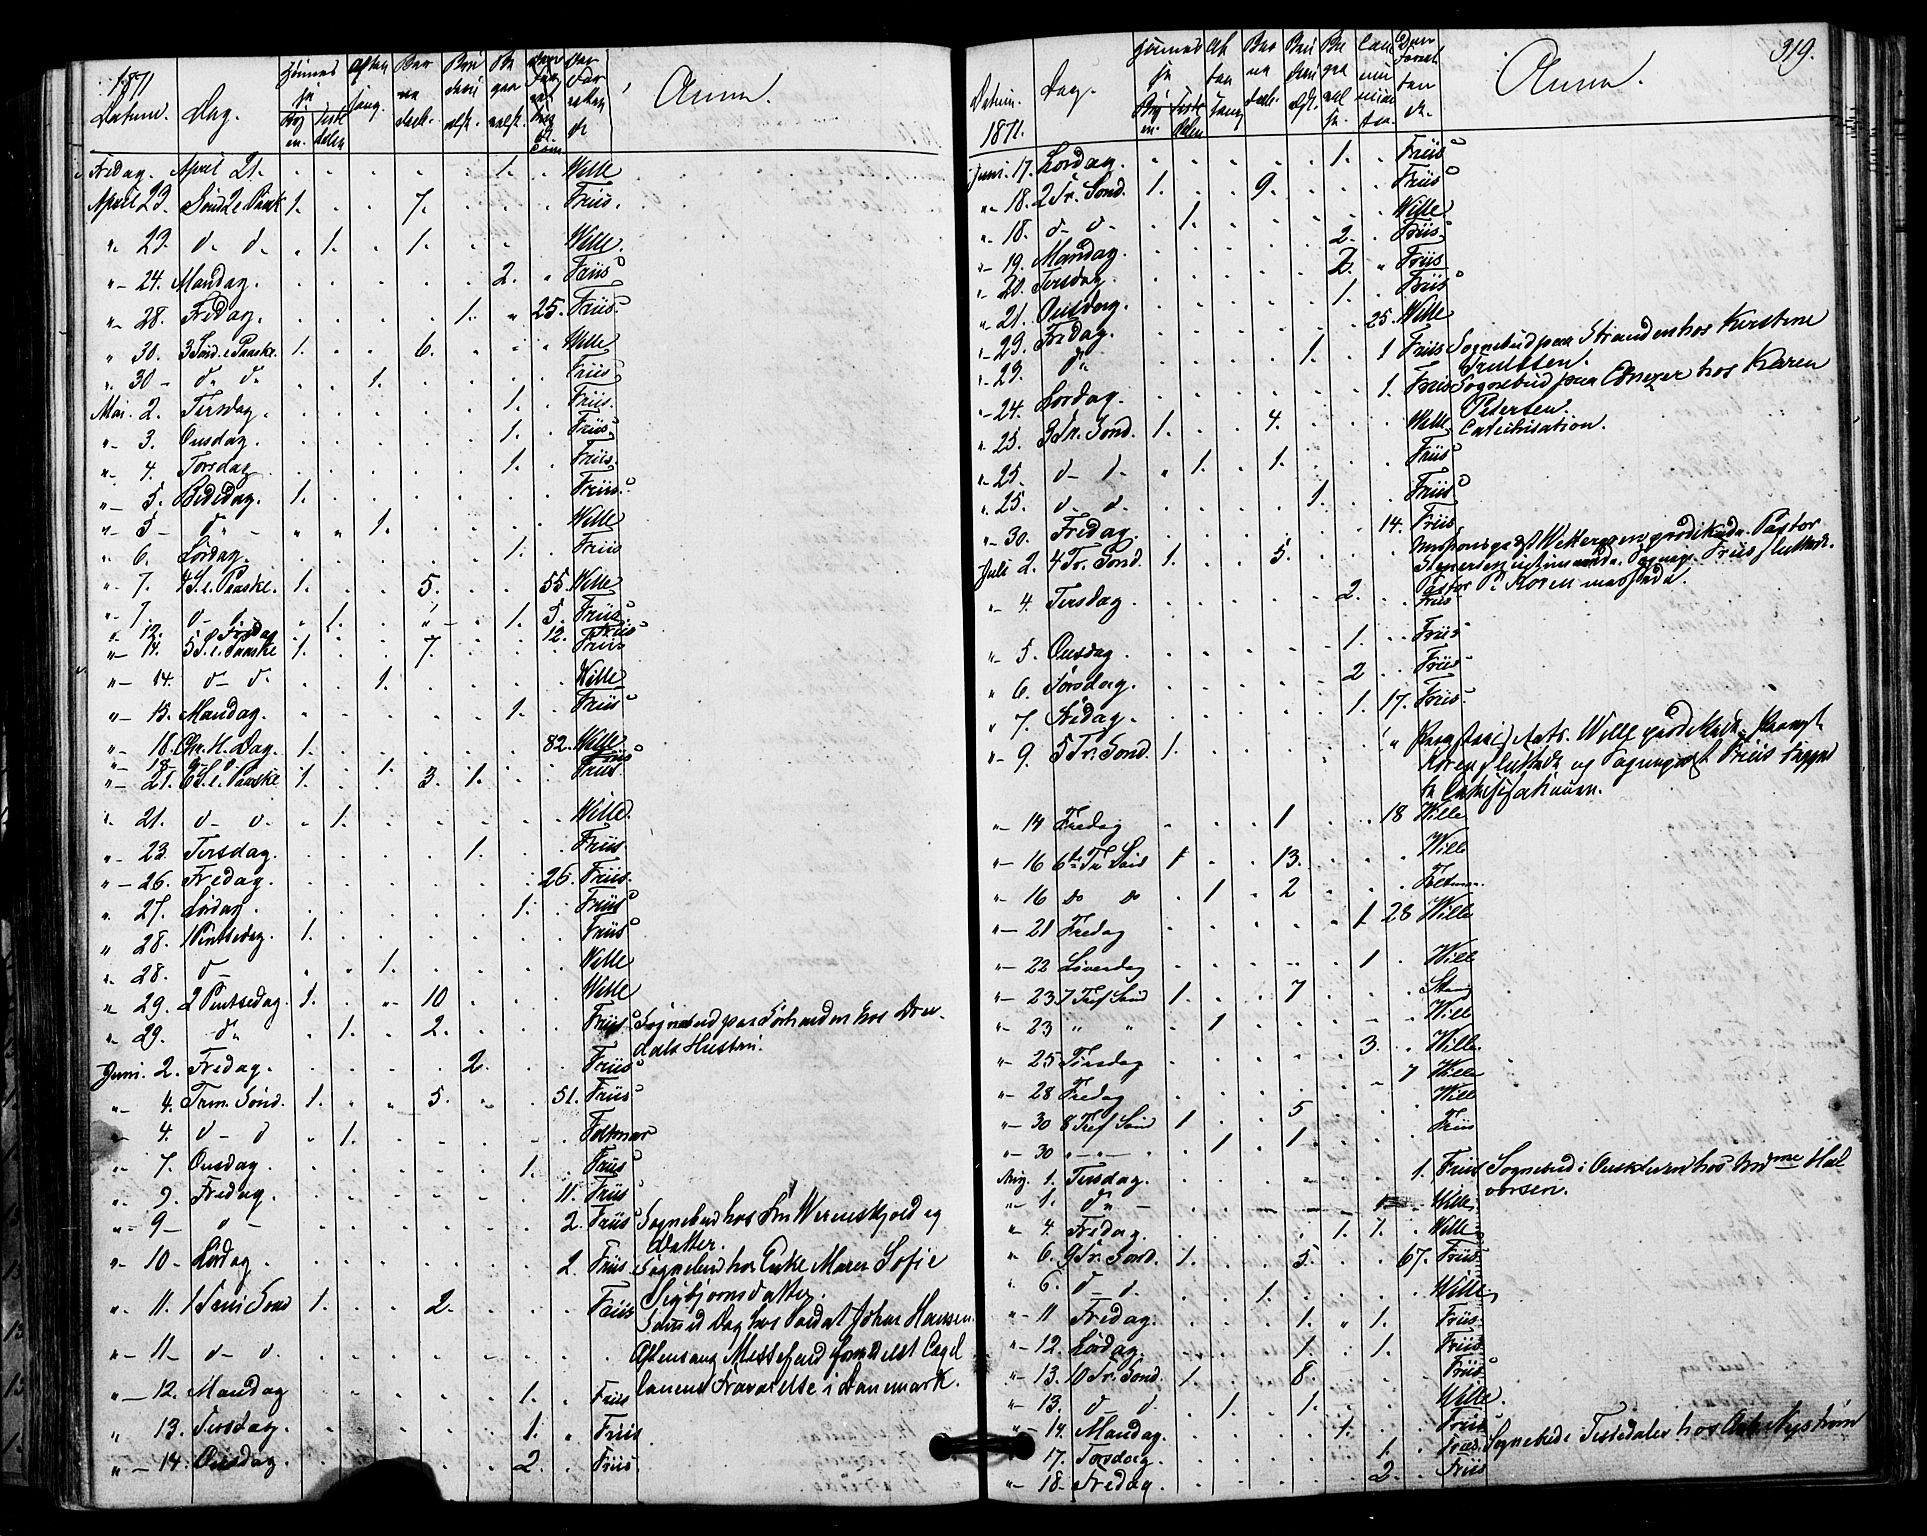 319.
1871
Datum. Dag. Høimesse By en. Tistedalen Aftensang. Barnedaab. Brudeviels. Begravels. Anm.
Fredag. April 21. 1. Wille
April 23. Sønd 2 e. Paask 1. 7. Friis.
"- 23. d- d- 1. 1. Wille.
"- 24. Mandag. 2. Friis
"- 28. Fredag. 1. 25. Friis.
"- 30. 3 Sønd. e. Paaske. 1. 6. Wille
"- 30 - d- d- 1. Friis
Mai. 2. Tirsdag. 1. Friis.
"- 3. Onsdag. 1. Friis.
"- 4. Torsdag 1. Friis.
"- 5. Bededag. 1. Friis.
"- 5 - d- - 1. Wille
"- 6. Lørdag. 1. Friis
"- 7. 4 S. e. Paaske. 1. 5. 55. Wille
"- 7. d- d- 1. 1. 5. Friis
"- 12. Fredag 12. Friis
"- 14. 5 S. e. Paaske 1. 7. Friis
"- 14. d- d- 1. Wille
"- 15. Mandag. 1. Friis
"- 18. Chr. H. Dag. 1. 82. Wille
"- 18 1. Friis
"- 21. 6 S. e. Paaske 1. 3. 1. Friis
"- 21. d- d- 1. Wille.
"- 23. Tirsdag. 1. Friis
"- 26. Fredag. 26. Friis.
"- 27. Lørdag. 1. Friis
"- 28. 1 Pintsedag. 1. Friis
"- 28. d- 1. Wille
"- 29. 2 Pintsedag. 1. 10 Wille
"- 29. d- 1. 2. Friis Sognebud paa Sørhanden hos
dals Hustru.
Juni. 2. Fredag. 2. Friis
"- 4. Trin. Sønd. 1. 5. 51. Friis
"- 4. d- d 1. Folkmar
"- 7. Onsdag. 1. Friis
"- 9. Fredag. 11. Friis
"- 9 - d - 2. Friis Sognebud hos Fru Werenskjold og
Datter.
"- 10 - Lørdag. 2. Friis Sognebud hos Enke Maren Sofie
Sigbjørnsdatter.
"- 11. 1 Trin. Sønd 1. 2. Friis Samme Dag hos Soldat Johan Hansen.
"- 11 - d- d. Aftensang Messefald formedelst Capel
lanens Fraværelse i Danemark.
"- 12. Mandag 1. Friis
"- 13. Tirsdag. 1. Friis.
"- 14. Onsdag. 2. Friis.
Datum. 1871. Dag. Høimesse By en. Tistedalen Aftensang Barnedaab. Brudevielse. Anm.
Juni. 17. Lørdag. 1. Friis
"- 18. 2 Tr. Sønd. 1. 9. Friis
"- 18. d- d- 1. Wille
"- 19. Mandag. 2. Friis
"- 20. Tirsdag. 2. Friis
"- 21. Onsdag. 1. Friis
"- 23. Fredag. 25. Wille
"- 23. d- 1. 1 Friis Sognebud paa Stranden hos Kirstine
Trulssen.
"- 24. Lørdag. 1. Friis Sognebud paa hos Karen
Pedersen.
"- 25. 3 Tr. Sønd. 1. 4. Wille Catechisation.
"- 25. d- 1. 1. Friis
"- 25. d- d. 1. Friis
"- 30. Fredag. 14. Friis
Juli 2. 4 Tr. Sønd. 1. 5. Missionsgudst. Wettergren prædikede. Pastor
Friis sluttede.
"- 4. Tirsdag. 2. Friis Pastor P. Koren messede.
"- 5. Onsdag. 1. Friis
"- 6. Torsdag. 2 Friis
"- 7. Fredag. 1. 17. Friis.
"- 9. 5 Tr. Sønd. 1. Wille prædikede Provst
Koren sluttede og Sogneprest Friis
Catechisationen.
"- 14 Fredag 1 18 Wille
"- 16 6te Tr. Sønd 1 13. Wille
"- 16 do do 1 2 Folkmar.
"- 21 Fredag 1. 28 Wille
"- 22 Løverdag 1. Wille
"- 23 7 Tref Sønd 1. 7 Stang
"- 23 " " 1 Wille
"- 25 Tirsdag 3. Wille.
"- 28 Fredag 7 Wille
"- 30 8 Tref Sønd 1 5 Wille
"- 30 "-"- 1 1. Friis
Aug. 1. Tirsdag. 1. Friis Sognebud i hos Hal
vorsen.
"- 1. d- Wille
"- 4. Fredag. 1. 1. Wille
"- 6. 9 Tr. Sønd. 1. 5. 67. Friis
"- 6. d- d. 1. Wille
"- 11 Fredag. 1. 1. Friis.
"- 12. Lørdag. 1. 1. Friis
"- 13. 10 Tr. Sønd. 1 8. Friis
"- 13. d- d. 1. 1. Wille.
"- 14. Mandag. 1. Friis
17. Torsdag. 1. Friis. Sognebud i Tistedalen hos Nystrøm
"- 18. Fredag. 2. Friis